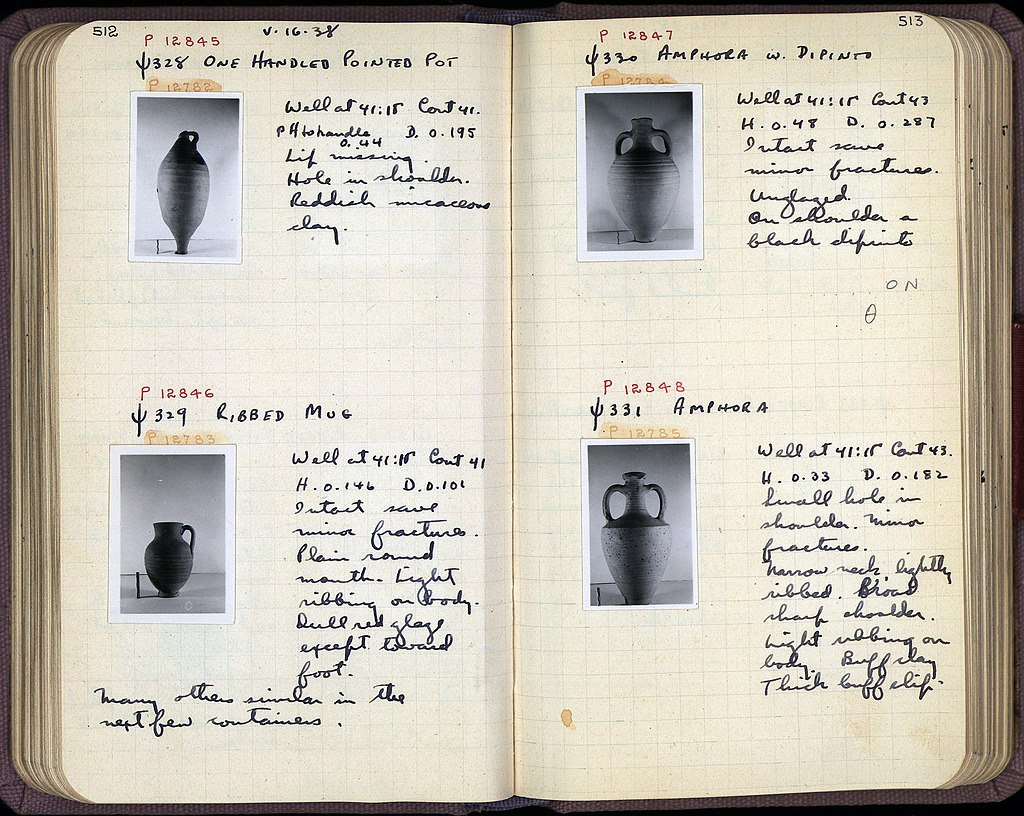 512
V-16-38
P 12845
ψ328 ONE HANDLED POINTED POT
P 12782
Well at 41:ΙΕ Cont 41.
PH to handle D. 0.195
0.44
Lip missing.
Hole in shoulder.
Reddish micaceous
clay.
P 12846
ψ329 RIBBED MUG
P 12783
Well at 41:ΙΕ Cont 41
H. 0.146 D. 0.101
Intact save
minor fractures.
Plain round
mouth. Light
ribbing on body.
Dull red glaze
except toward
foot.
Many others similar in the
next few containers.
513
P 12847
ψ330 AMPHORA W. DIPINTO
P 12784
Well at 41:ΙΕ Cont 43
H. 0.48 D. 0.287
Intact save
minor fractures.
Unglazed.
On shoulder a
black dipinto
ON
θ
P 12848
ψ331 AMPHORA
P 12785
Well at 41:ΙΕ Cont 43.
H. 0.33 D. 0.182
Small hole in
shoulder. Minor
fractures.
Narrow neck, lightly
ribbed. Broad
sharp shoulder.
Light ribbing on
body. Buff clay
Thick buff slip.